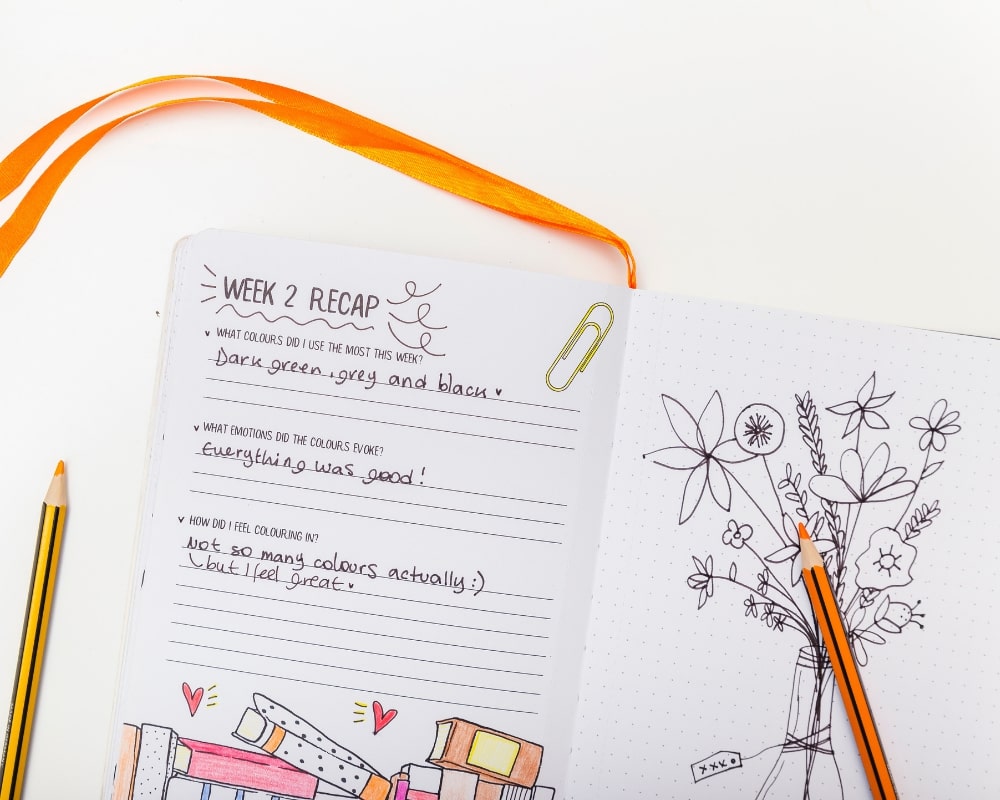 WEEK 2 RECAP
WHAT COLOURS DID I USE THE MOST THIS WEEK?
Dark green, grey and black
WHAT EMOTIONS DID THE COLOURS EVOKE?
Everything was good!
HOW DID I FEEL COLOURING IN?
Not so many colours actually :)
but I feel great
xxx